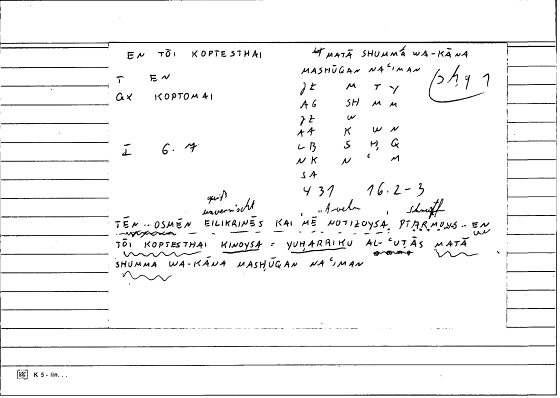 EN TŌI KOPTESTHAI
MATĀ SHUMMA WA-KĀNA
MASHŪGAN NAʿIMAN
T EN
QX KOPTOMAI
I 6.7
JE M T Y
AG SH M M
JE W
AA K W N
LB S Ḥ Q
NK N ʿ M
SA
431 16.2-3
TĒN .. OSMĒN EILIKRINĒS KAI MĒ NOTIZOYSA PTARMOYS .. EN
TŌI KOPTESTHAI KINOYSA = YUHARRIKU AL-ʿUṬĀS MATĀ
SHUMMA WA-KĀNA MASHŪGAN NAʿIMAN
K 5 - lin. . .